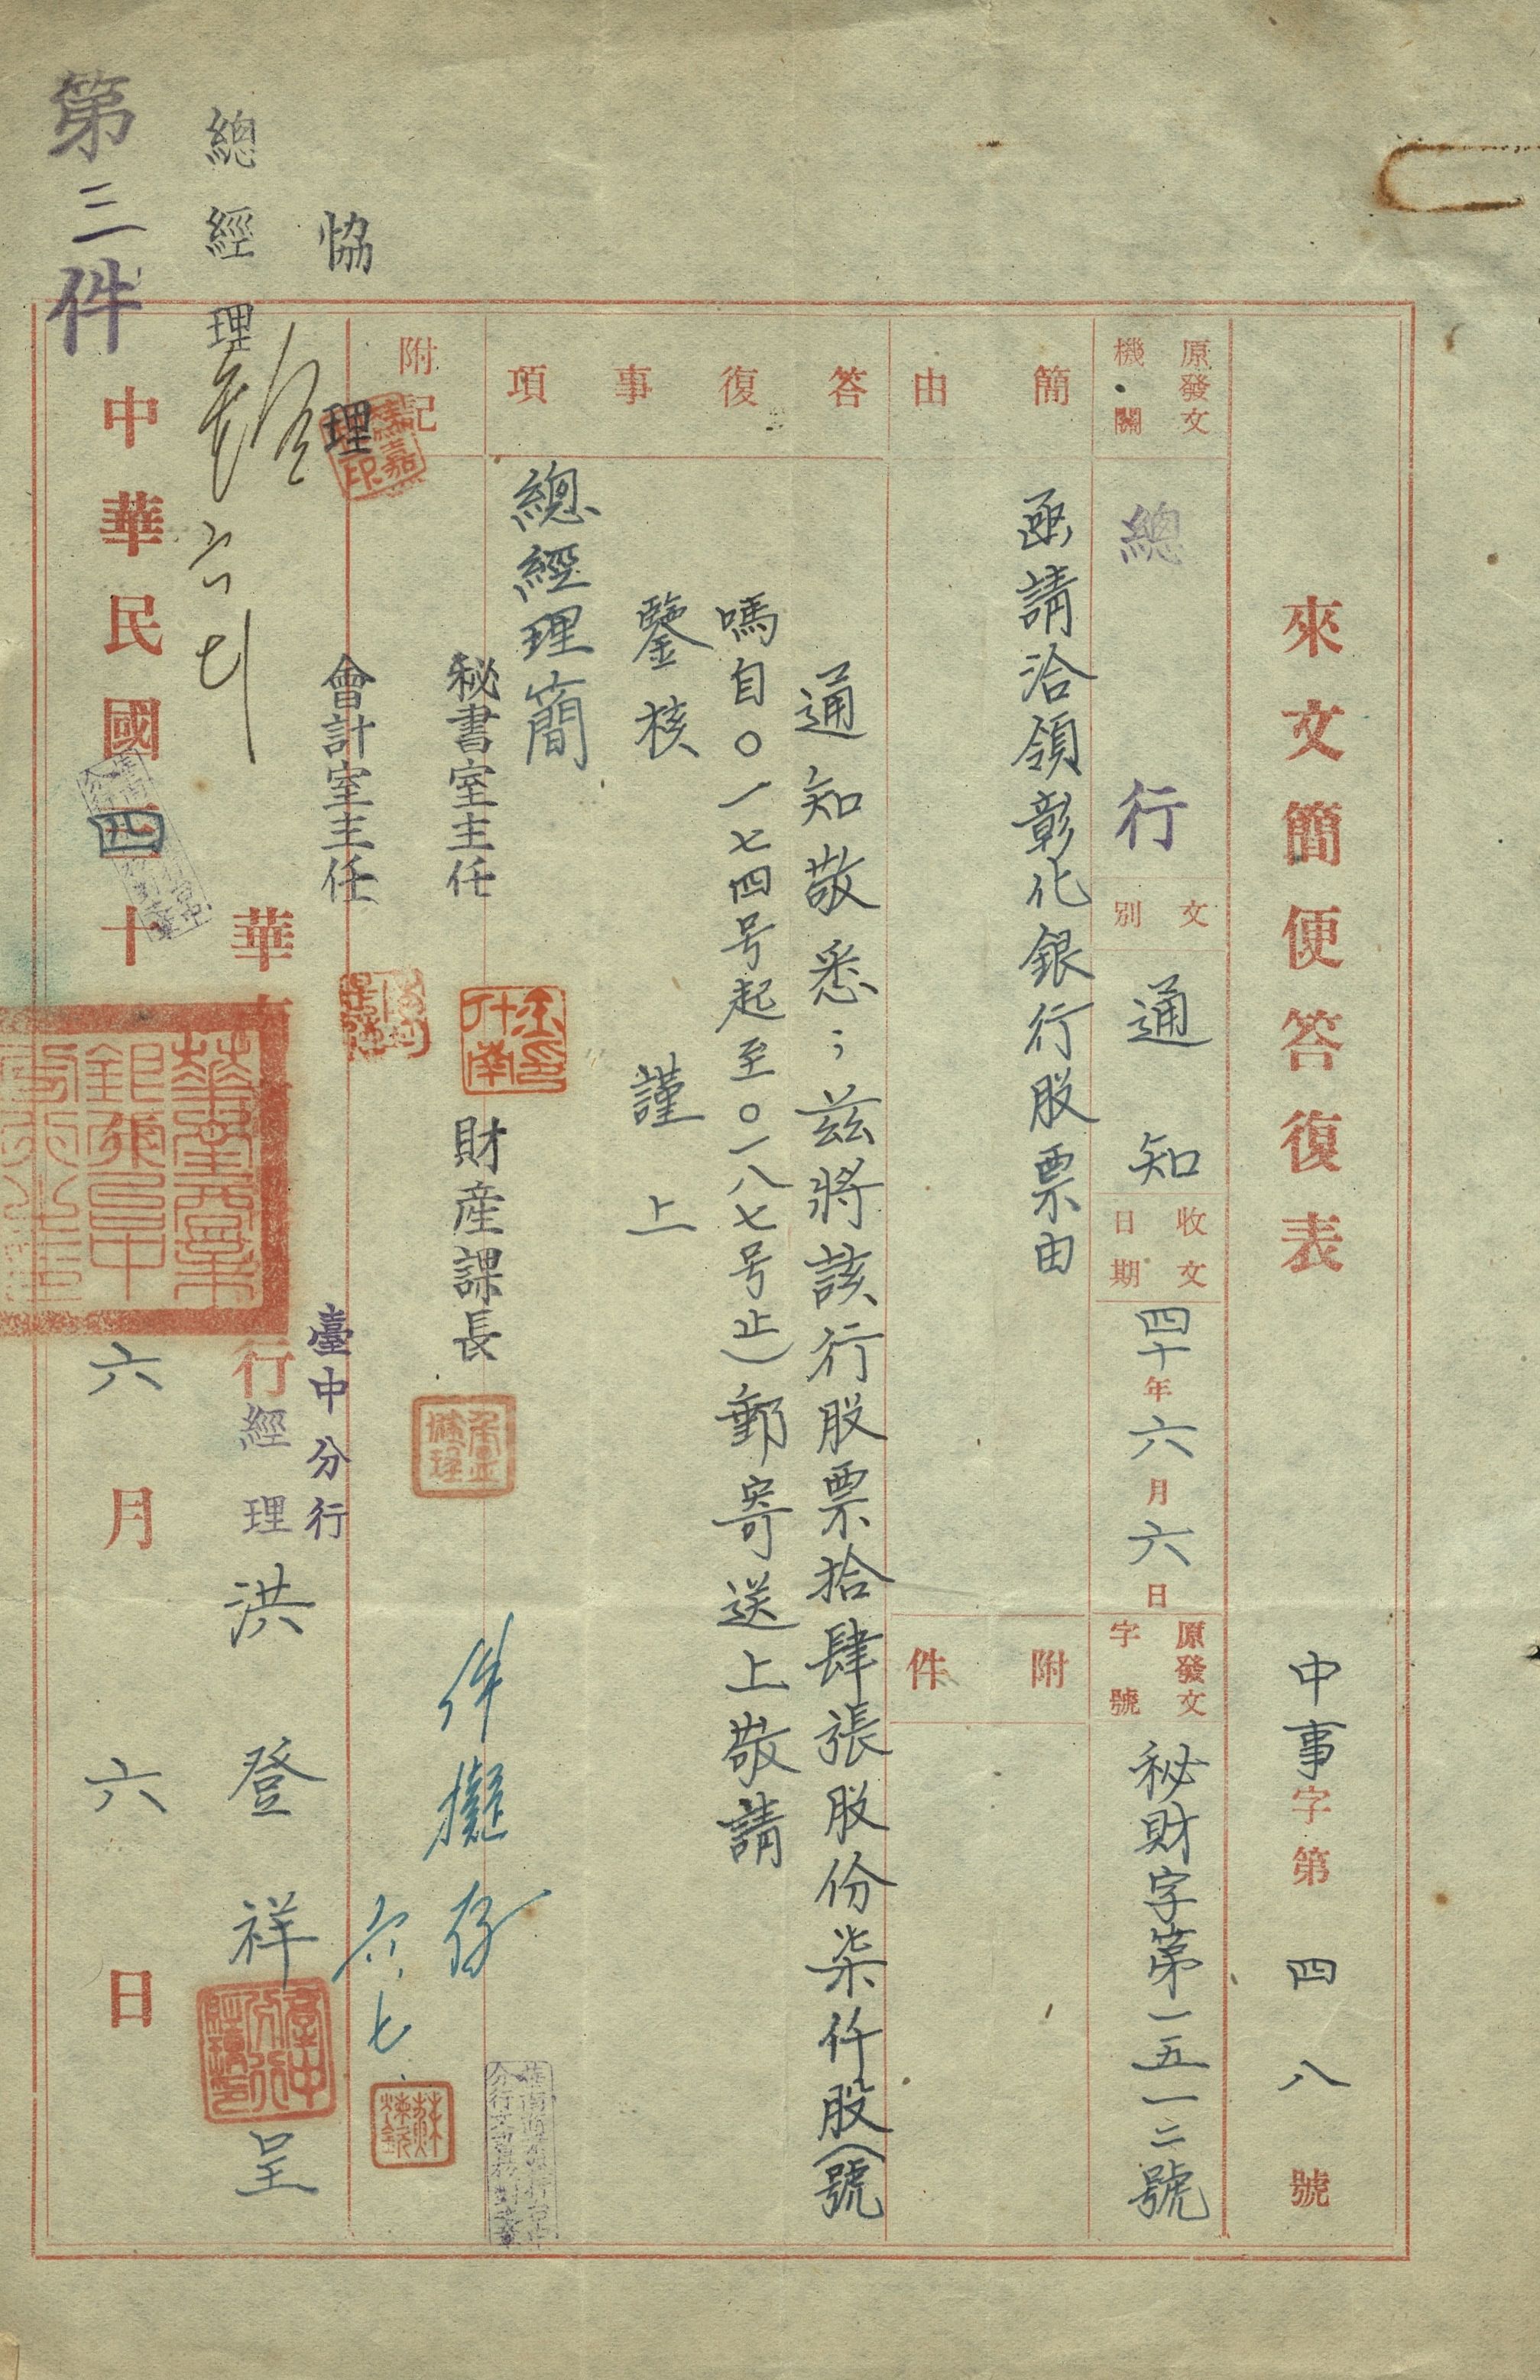 來文簡便答復表
中事字第四八號
原發文機關
總行
文別
通知
收文日期
四十年六月六日
原發文字號
秘財字第一五一二號
簡由
函請洽領彰化銀行股票由
附件
答復事項
通知敬悉；茲將該行股票拾肆張股份柒仟股（號
嗎自〇一七四号起至〇一八七号止）郵寄送上敬請
鑒核
謹上
總經理簡
附記
秘書室主任
財產課長
件擬存
六、七、
協理
會計室主任
臺中分行
總經理
六七
華 行經理洪登祥呈
中華民國四十 六月六日
第三件